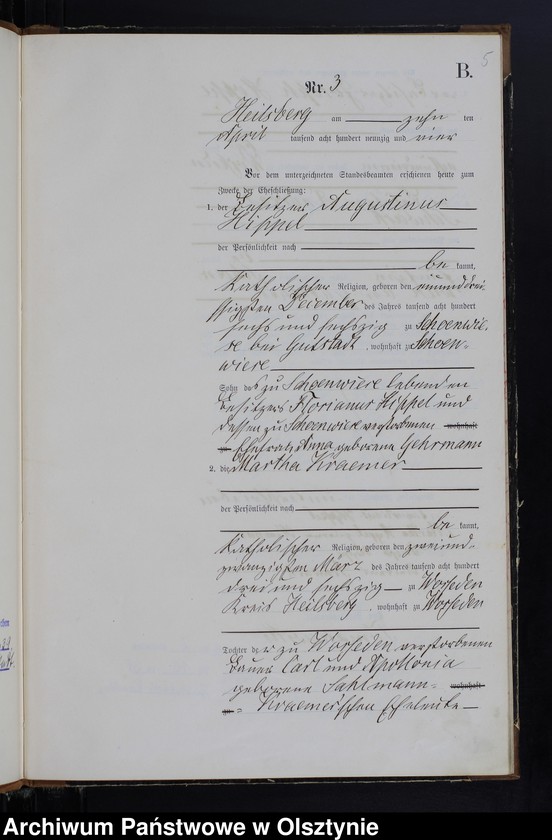 B. 5
Nr. 3
Heilsberg am zehn ten
April tausend acht hundert neunzig und vier
Vor dem unterzeichneten Standesbeamten erschienen heute zum
Zwecke der Eheschließung:
1. der Besitzer Augustinus
Hippel
der Persönlichkeit nach
be kannt,
katholischer Religion, geboren den einunddrei-
ßigsten December des Jahres tausend acht hundert
sechs und sechszig zu Schoenwie-
se bei Gutstadt, wohnhaft zu Schoen-
wiese
Sohn des zu Schoenwiese lebenden
Besitzers Florianus Hippel und
dessen zu Schoenwiese verstorbenen wohnhaft
zu Ehefrau Anna geborene Gehrmann
2. die Martha Kraemer
der Persönlichkeit nach
be kannt,
katholischer Religion, geboren den zweiund-
zwanzigsten März des Jahres tausend acht hundert
drei und sechszig zu Worseden
Kreis Heilsberg, wohnhaft zu Worseden
Tochter der zu Worseden verstorbenen
Bauer Carl und Apollonia
geborene Sahlmann- wohnhaft
zu = Kraemer'schen Eheleute
Archiwum Państwowe w Olsztynie